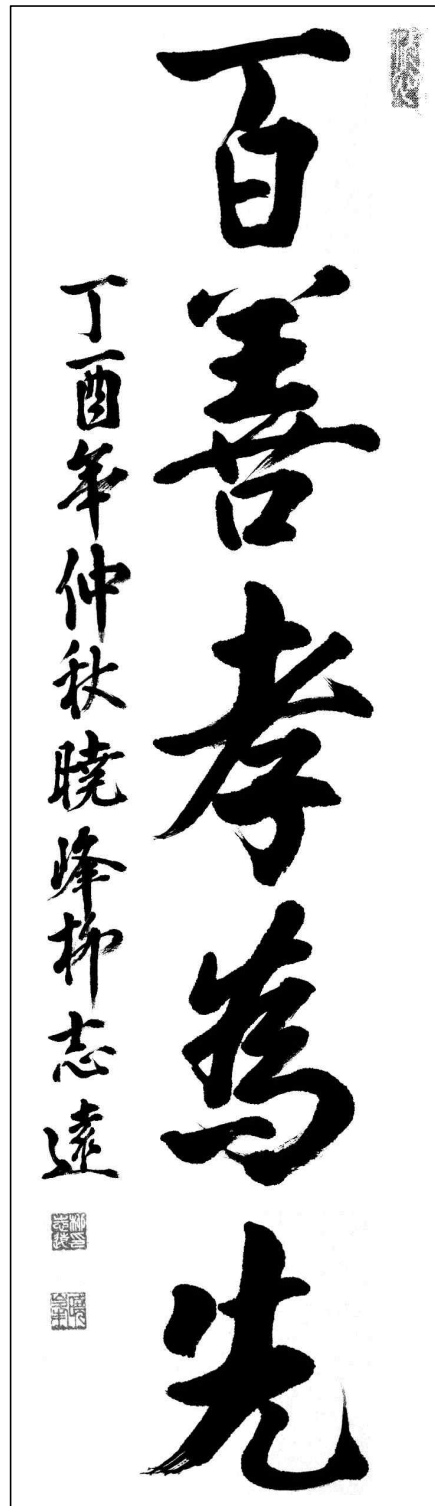 百善孝為先
丁酉年仲秋曉峰柳志遠